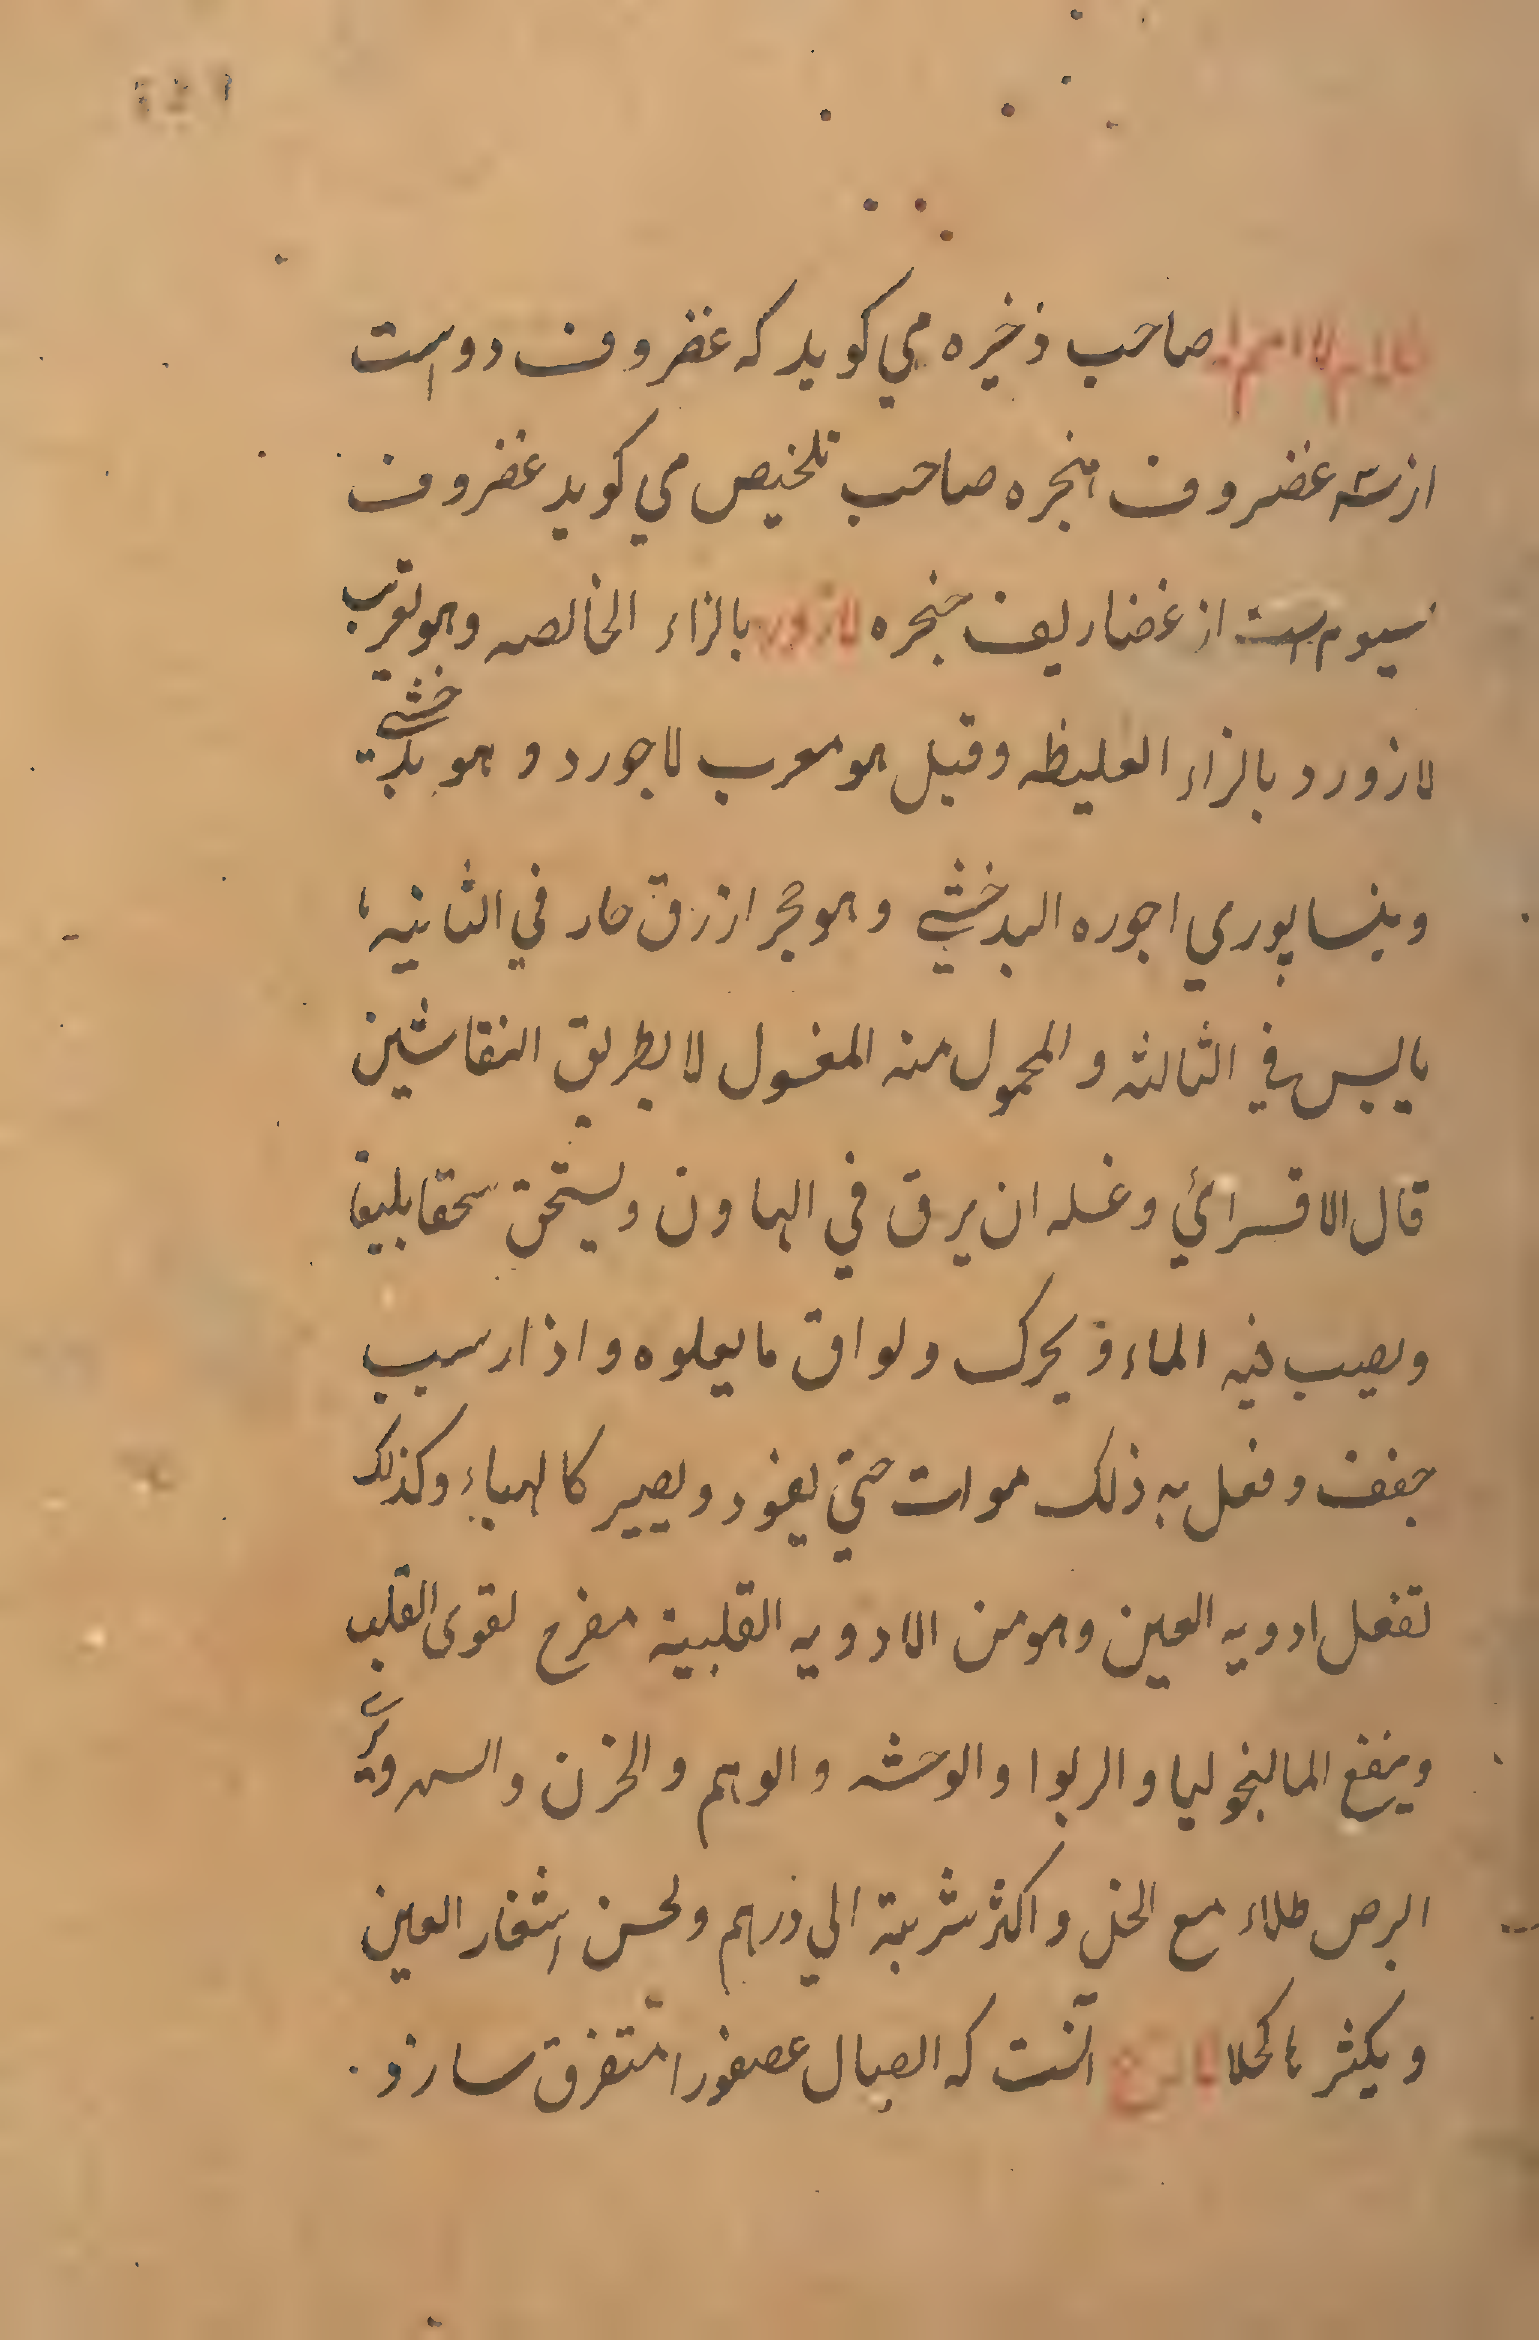 صاحب ذخیره می کوید که غضروف دو است
از سه غضروف حنجره صاحب تلخیص می کوید غضروف
سیوم است از غضاریف حنجره لازورد بالزاء الخالصه وهو تعریب
لازورد بالزاء الغلیظه وقیل هو معرب لاجورد و هو بدخشی
ونیساپوری اجوره البدخشی وهو حجر ازرق حار فی الثانیه
یابس فی الثالثه والمحمول منه المغسول لا بطریق النقاشین
قال الاقسرائی وغسله ان یرق فی الهاون ویستحق سحقا بلیغا
ویصب فیه الماء و یحرک و لواق ما یعلوه و اذا رسب
جفف وفعل به ذلک موات حتی یعود ویصیر کالهباء وکذلک
تفعل ادویه العین وهو من الادویه القلبیة مفرح لقوی القلب
وینفع المالیخولیا والربوا والوحشه والوهم والحزن والسهر ویزیل
البرص طلاء مع الخل واکثر شربته الی درهم ولحسن اشفار العین
ویکثرها کحلا آنست که الصبال عصفور امتفرق سازد